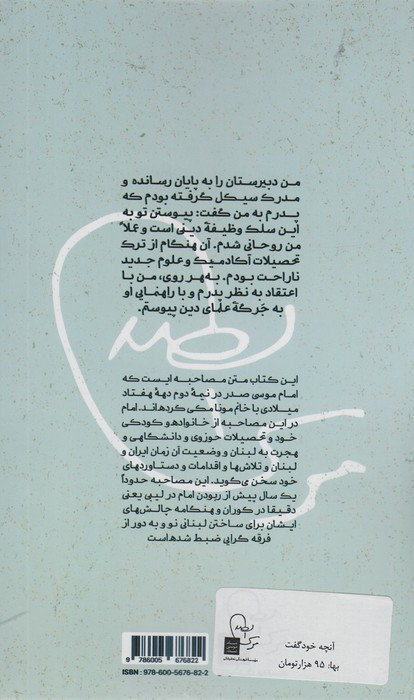 من دبیرستان را به پایان رسانده و
مدرک سیکل گرفته بودم که
پدرم به من گفت: پیوستن تو به
این سلک وظیفهٔ دینی است و عملاً
من روحانی شدم. آن هنگام از ترک
تحصیلات آکادمیک و علوم جدید
ناراحت بودم. به‌هر روی، من با
اعتقاد به نظر پدرم و با راهنمایی او
به جَرگهٔ علمای دین پیوستم.
این کتاب متن مصاحبه ایست که
امام موسی صدر در نیمهٔ دوم دههٔ هفتاد
میلادی با خانم مونا مکی کرده‌اند. امام
در این مصاحبه از خانواده و کودکی
خود و تحصیلات حوزوی و دانشگاهی و
هجرت به لبنان و وضعیت آن زمان ایران و
لبنان و تلاش‌ها و اقدامات و دستاوردهای
خود سخن می‌گوید. این مصاحبه حدوداً
یک سال پیش از ربودن امام در لیبی یعنی
دقیقا در کوران و هنگامه چالش‌های
ایشان برای ساختن لبنانی نو و به دور از
فرقه گرایی ضبط شده‌است
آنچه خود گفت
بها: ۹۵ هزارتومان
9 786005 676822
ISBN: 978-600-5676-82-2